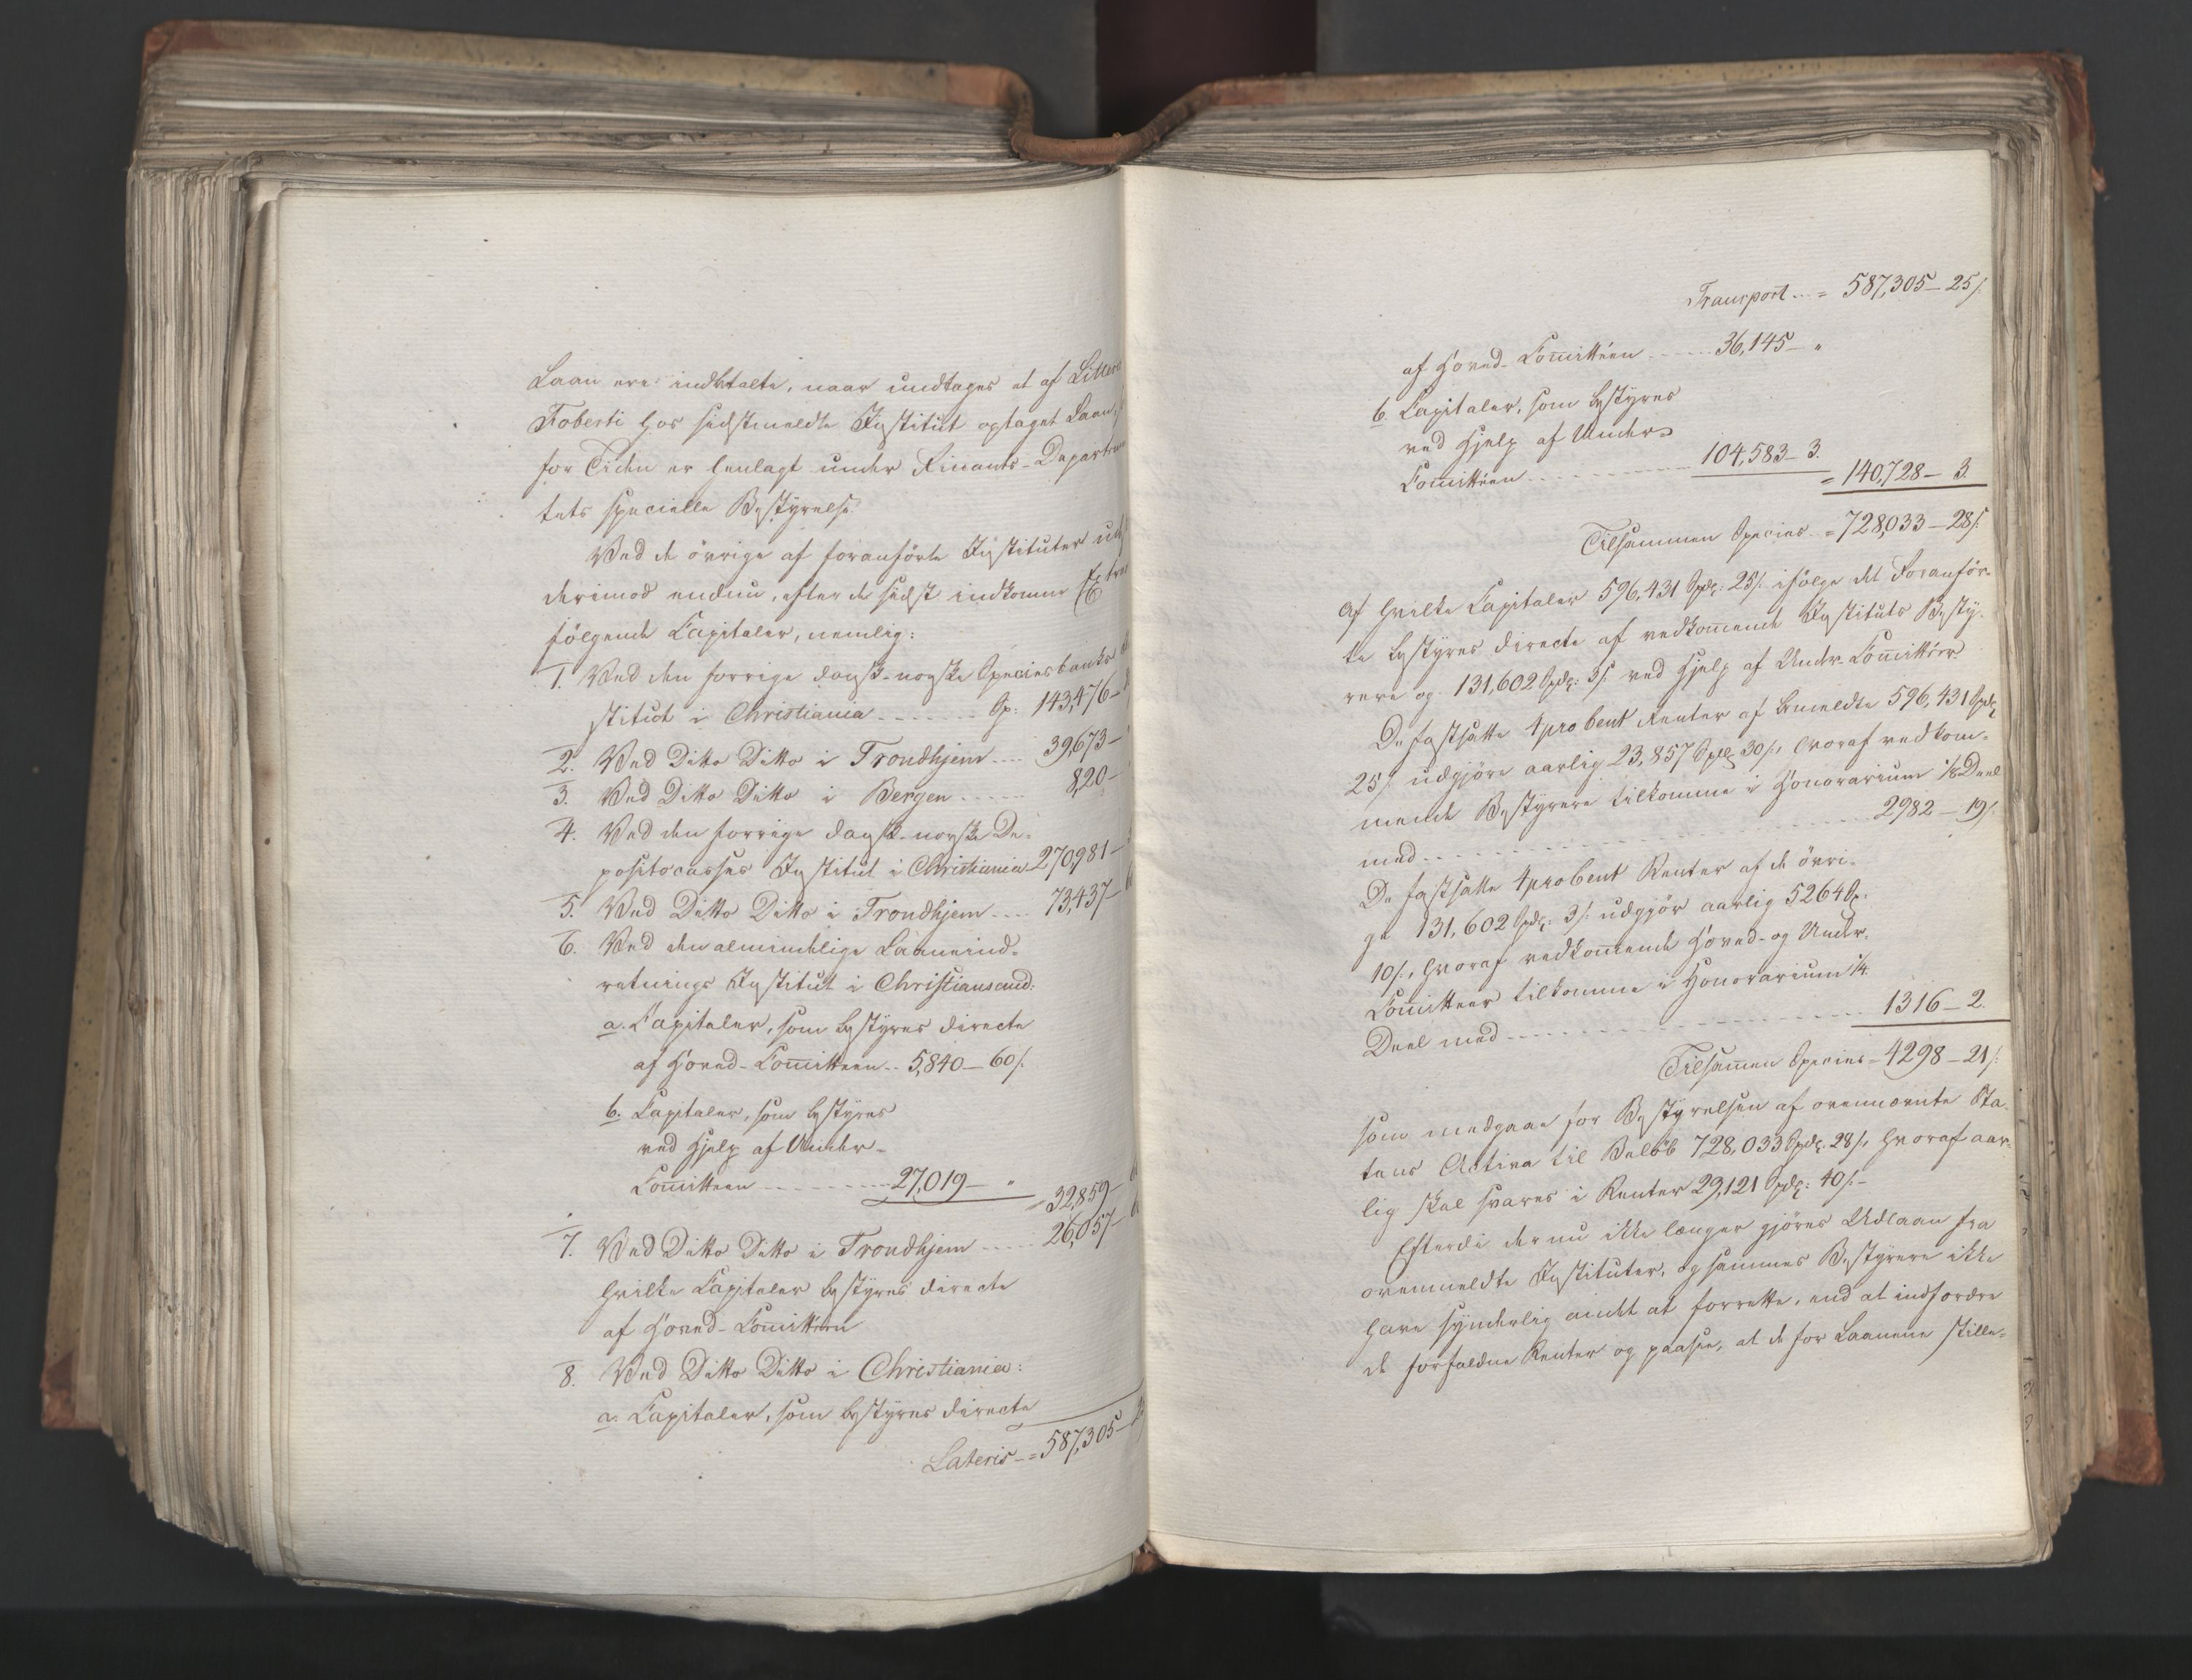 Laan ere indbetalte, naar undtages et af
Foberti hos sidstmeldte Institut optaget Laan,
for Tiden er henlagt under Finants-
tets specielle Bestyrelse.
Ved de övrige af foranførte Instituter
derimod endnu, efter de sidst indkomne
følgende Capitaler, nemlig:
1. Ved den forrige dansk-norske Speciesbanks
stitut i Christiania Sp: 143,476-
2. Ved Ditto Ditto i Trondhjem 39,673-
3. Ved Ditto Ditto i Bergen 820-
4. Ved den forrige dansk-norske De-
positocasses Institut i Christiania 270,981-
5. Ved Ditto Ditto i Trondhjem 73,437-
6. Ved den almindelige Laaneind-
retnings Institut i Christiansand:
a. Capitaler, som bestyres directe
af Hoved-Com̅itteen 5,840-60/.
b. Capitaler, som bestyres
ved Hjelp af Under-
Com̅itteen 27,019- "
= 32,859-
7. Ved Ditto Ditto i Trondhjem 26,057-
hvilke Capitaler bestyres directe
af Hoved-Com̅itteen
8. Ved Ditto Ditto i Christiania:
a. Capitaler, som bestyres directe
Lateris = 587,305-
Transport = 587,305-25/.
af Hoved-Com̅ittéen 36,145- "
b. Capitaler, som bestyres
ved Hjelp af Under-
Com̅ittéen 104,583-3.
= 140,728-3.
Tilsammen Species = 728,033-28/.
Af hvilke Capitaler 596,431 Spd: 25/. ifølge det Foranfør-
te bestyres directe af vedkom̅ende Instituts Besty-
rere og 131,602 Spd: 3/. ved Hjelp af Under-Com̅ittéer.
De fastsatte 4 pro Cent Renter af bemeldte 596,431 Spd:
25/. udgjøre aarlig 23,857 Spd: 30/., hvoraf vedkom-
mende Bestyrere tilkomme i Honorarium 1/8 Deel
med 2982-19/.
De fastsatte 4 pro Cent Renter af de övri-
ge 131,602 Spd: 3/. udgjør aarlig 5264 Sp:
10/., hvoraf vedkom̅ende Hoved- og Under-
Com̅itteer tilkomme i Honorarium 1/4
Deel med 1316-2.
Tilsam̅en Species = 4298-21/.
som medgaae for Bestyrelsen af ovennævnte Sta-
tens Activa til Beløb 728,033 Spd: 28/., hvoraf aar-
lig skal svares i Renter 29,121 Spd: 40/.-
Efterdi der nu ikke længer gjöres Udlaan fra
ovenmeldte Instituter, og sammes Bestyrere ikke
have synderlig andet at forrette, end at indfordre
de forfaldne Renter og paasee, at de for Laanene stille-